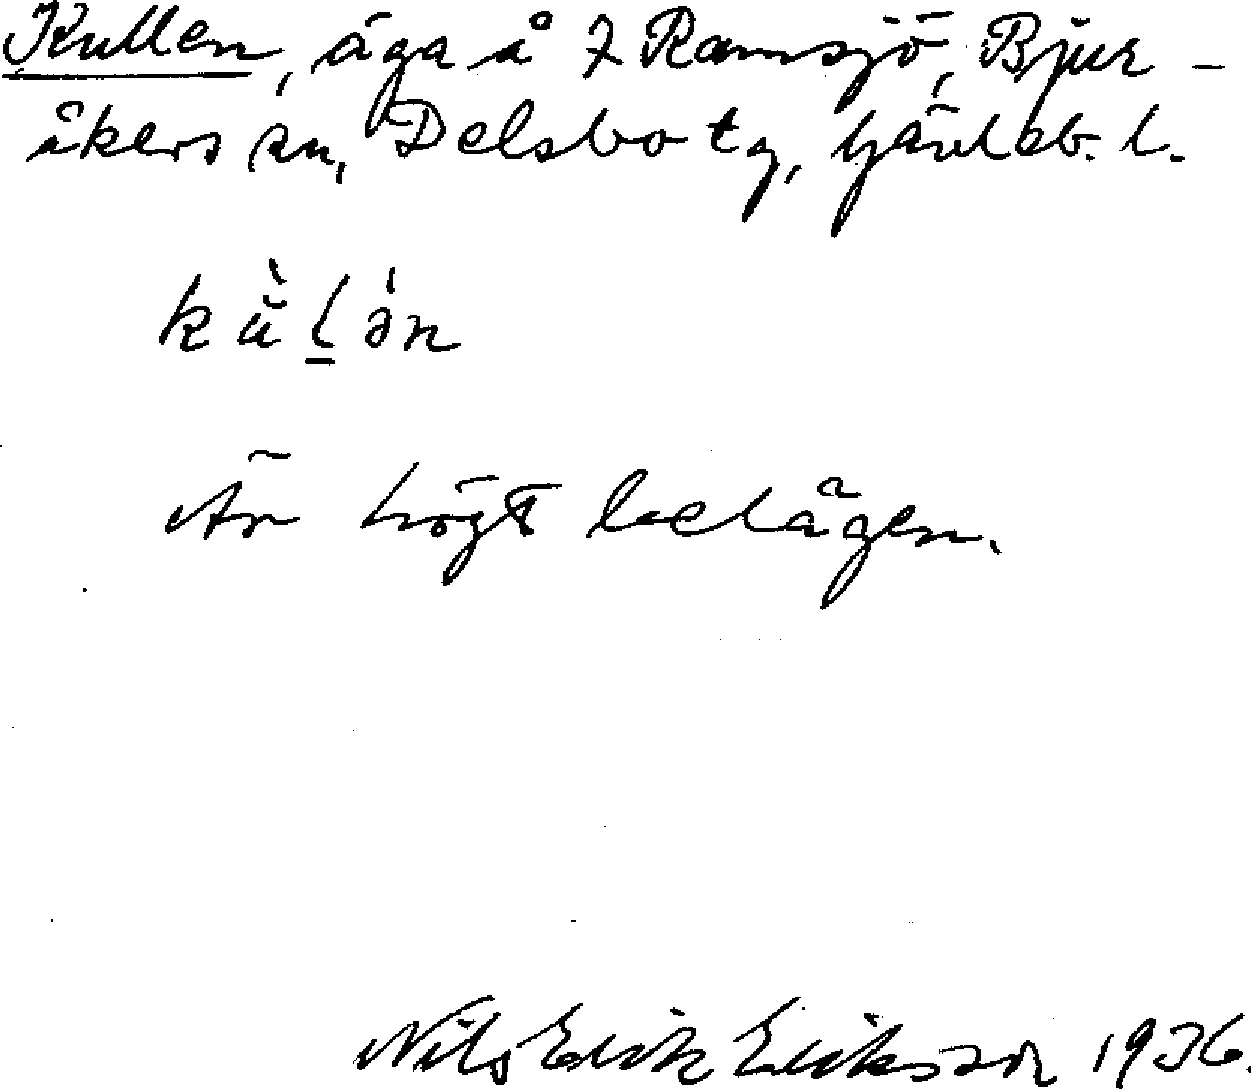 Kullen, äga å 7 Ramsjö, Bjur-
åkers sn, Delsbo tg, Gävleb. l.
kŭ̀ḻə́n
Är högt belägen.
Nils Erik Eriksson 1936.